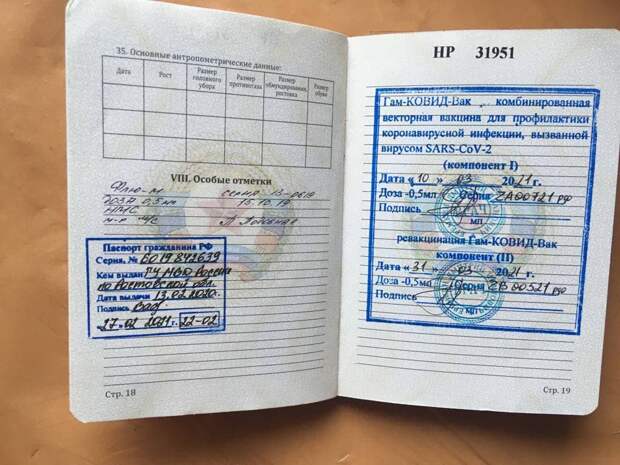 35. Основные антропометрические данные:
Дата Рост Размер головного убора Размер противогаза Размер обмундирования, ростовка Размер обуви
VIII. Особые отметки
Флю-М серия 13-0619
доза 0,5 мл 15.10.19
НМС
м-р м/с
Паспорт гражданина РФ
Серия, № 6019 842639
Кем выдан ГУ МВД России
по Ростовской обл.
Дата выдачи 13.02.2020г.
Подпись
27.02.2021г. 22-02
Стр. 18
НР 31951
Гам-КОВИД-Вак , комбинированная
векторная вакцина для профилактики
коронавирусной инфекции, вызванной
вирусом SARS-CoV-2
(компонент I)
Дата «10 » 03 2021г.
Доза -0,5мл Серия
Подпись
МП
ревакцинация Гам-КОВИД-Вак
компонент (II)
Дата «31 » 03 2021г.
Доза -0,5мл Серия
Подпись
МП
Стр. 19